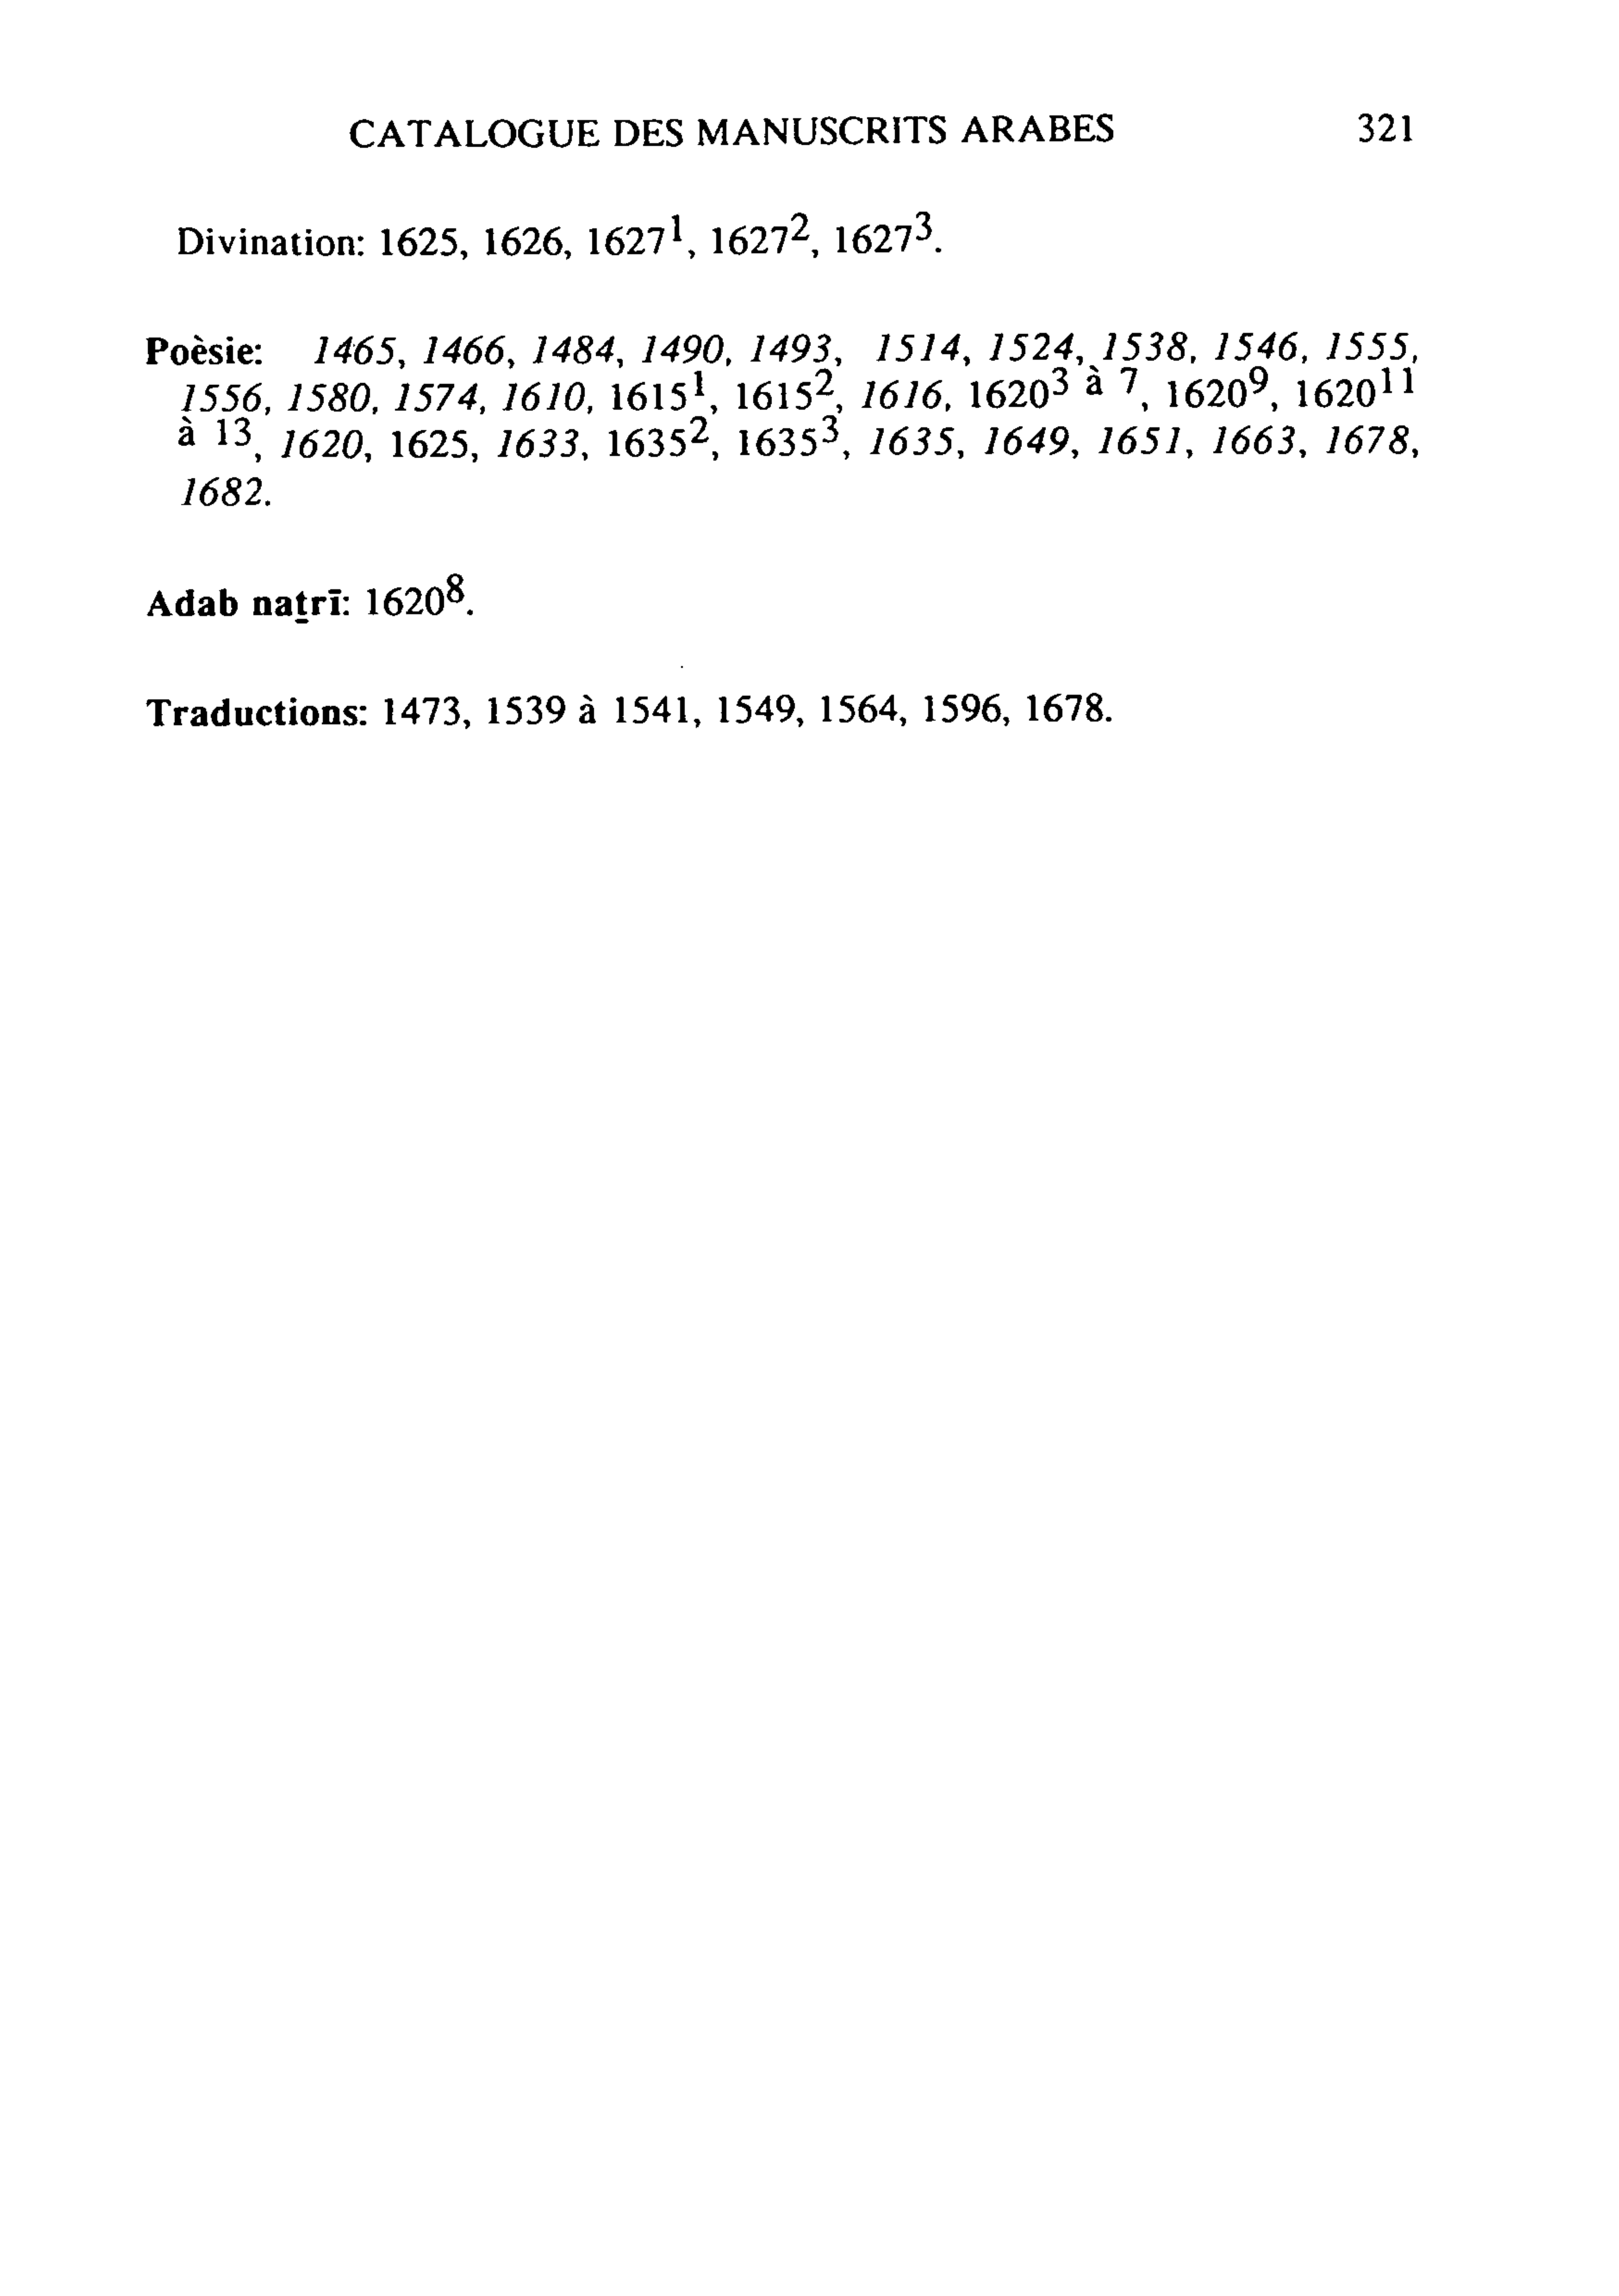 CATALOGUE DES MANUSCRITS ARABES 321
Divination: 1625, 1626, 1627¹, 1627², 1627³.
Poèsie: 1465, 1466, 1484, 1490, 1493, 1514, 1524, 1538, 1546, 1555,
1556, 1580, 1574, 1610, 1615¹, 1615², 1616, 1620³ à ⁷, 1620⁹, 1620¹¹
à ¹³, 1620, 1625, 1633, 1635², 1635³, 1635, 1649, 1651, 1663, 1678,
1682.
Adab naṯrī: 1620⁸.
Traductions: 1473, 1539 à 1541, 1549, 1564, 1596, 1678.